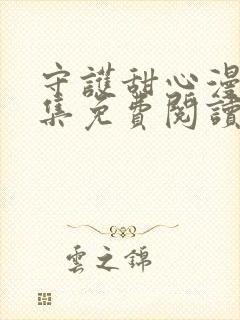 守護甜心漫
集免費閱讀
雲之錦